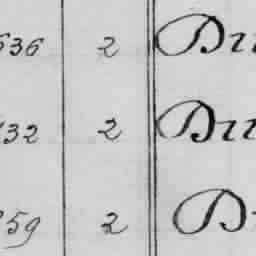 636 2 Du
132 2 Du
59 2 D